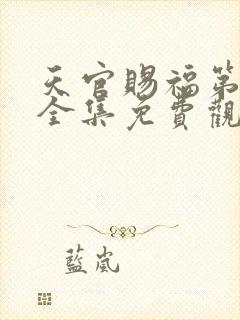 天官賜福第
全集免費觀
藍嵐